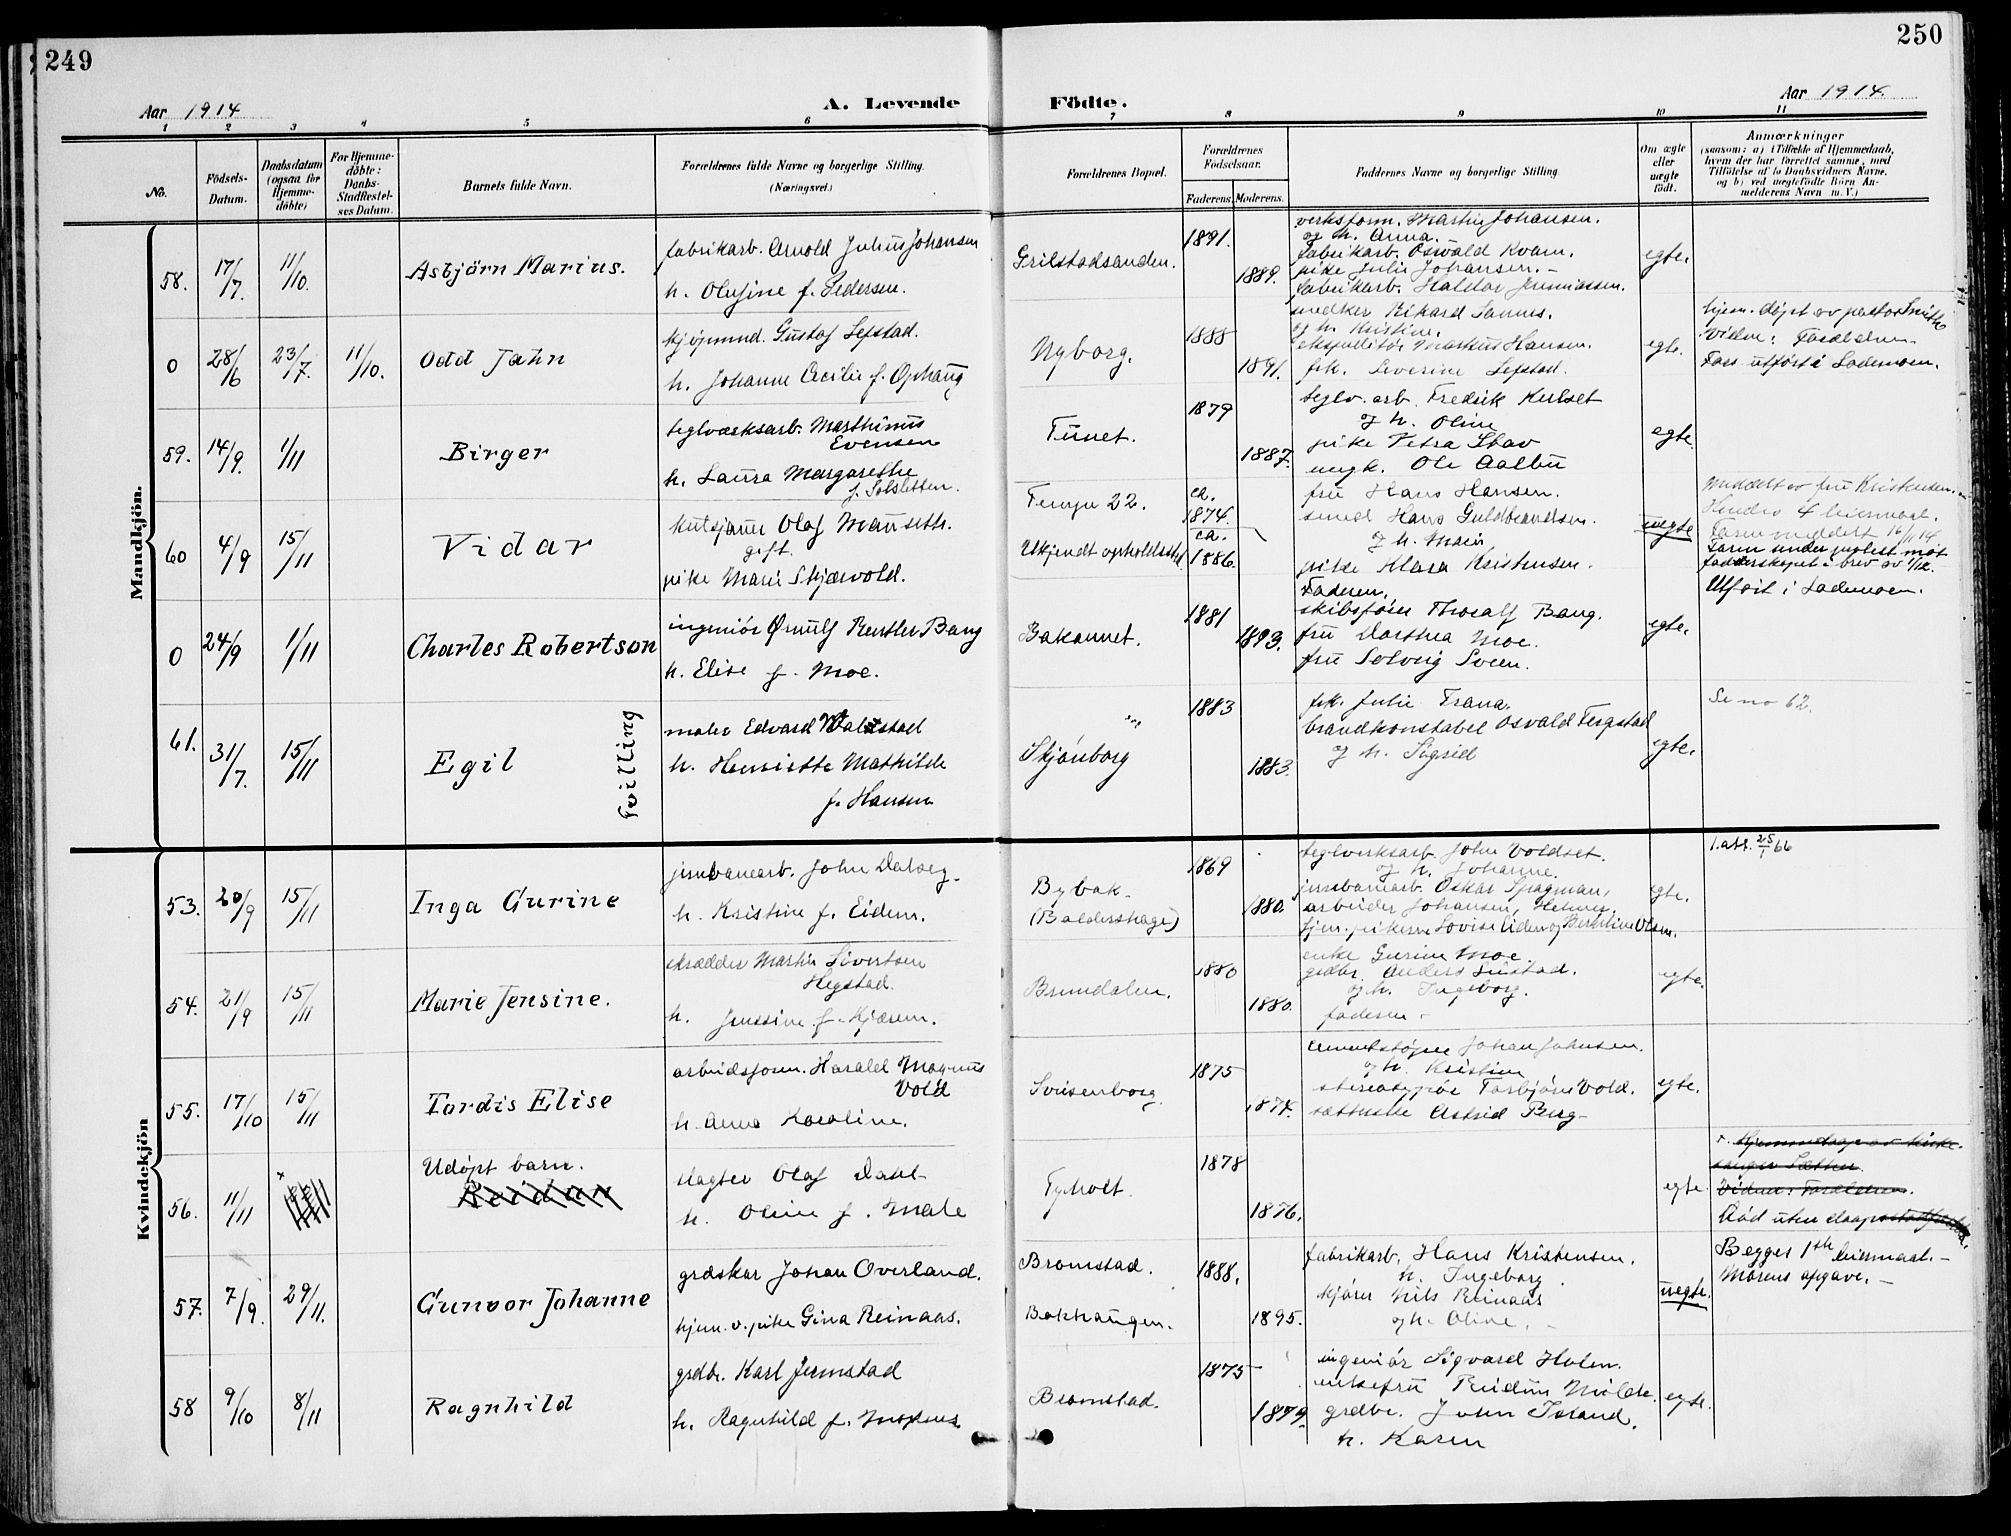 249
250
Aar 1914
A. Levende
Födte.
Aar 1914.
1 2 3 4 5 6 7 8 9 10 11
No.
Födsels-
Datum.
Daabsdatum
(ogsaa for
Hjemme-
döbte)
For Hjemme-
döbte:
Daabs-
Stadfæstel-
ses Datum.
Barnets fulde Navn.
Forældrenes fulde Navne og borgerlige Stilling.
(Næringsvei.)
Forældrenes Bopæl.
Forældrenes
Födselsaar.
Faderens.
Moderens.
Faddernes Navne og borgerlige Stilling.
Om ægte
eller
uægte
født.
Anmærkninger
(saasom: a) i Tilfælde af Hjemmedaab,
hvem der har forrettet samme, med
Tilföielse af to Daabsvidners Navne,
og b) ved uægtefödte Börn An-
melderens Navn m. V.)
Mandkjön.
58.
17/7.
11/10.
Asbjörn Marius.
fabrikarb. Arnold Julius Johansen
h. Olufine f. Pedersen.
Grilstadsanden.
1891.
1889.
verksform. Martin Johansen.
og h. Anna.
fabrikarb. Osvald Kvam.
pike Julie Johansen. -
fabrikarb. Haldor
egte.
0
28/6
23/7.
11/10.
Odd Jahn
kjøpmnd. Gustaf Sefstad.
h. Johanne Cecilie f. Ophaug
Nyborg.
1888
1891.
snedker Rikard
og h. Kristine.
ekspeditör Markus Hansen.
frk. Severine Sefstad.
egte.
hjem. døpt av pastor Smith
Vidne: Forældrene
Fass utført i Lademoen.
59.
14/9.
1/11
Birger
teglverksarb. Marthinus
Evensen
h. Laura Margarethe
f. Solsletten.
Tunet.
1879
1887.
teglv. arb. Fredrik
og h. Oline
pike Petra Stav
ungk. Ole Aalbu
egte
60
4/9
15/11
Vidar
kutsjaner Olaf Mauseth.
gift.
pike Marie Skjærvold.
Tempe 22.
Ukjendt opholdssted
ca.
1874.
ca.
1886.
fru Hans Hansen.
smed Hans Guldbrandsen.
og h. Marie
pike Klara Kristensen.
Faderen.
uegte
Meddelt av fru Kristensen.
Hendes 4 leiermaal.
Faren meddelt 16/11 14
Faren under protest mot
farderskapet i brev av 1/12.
Utført i Lademoen.
0
24/9
1/11
Charles Robertson
ingeniör Ørnulf Rentler Bang
h. Elise f. Moe.
Bakaunet.
1881
1893.
skibsfører Thoralf Bang.
fru Dorthea Moe.
fru Solveig Sveen.
egte.
61.
31/7.
15/11
Egil
Tvilling
maler Edvard
h. Henriette Mathilde
f. Hansen
Skjönborg
1883
1883.
frk. Julie Frana.
brandkonstabel Osvald Fergstad
og h. Sigrid
egte.
Se no 62.
Kvindekjön
53.
20/9
15/11
Inga Gurine
jernbanearb. John Dalseg.
h. Kristine f. Eidem.
Bybak
(Baldershage)
1869
1880.
teglverksarb. John Voldset.
og h. Johanne.
jernbanearb. Oskar Spagman,
arbeider Johansen, Helmer,
hjem. pikerne Lovise Eidem og Berntine Olsen.
egte.
1. att. 25/1 66
54.
21/9
15/11
Marie Jensine.
skrædder Martin Sivertsen
Hegstad.
h. Jenssine f. Kjærem.
Brundalen.
1880
1880.
enke Gurine Moe.
grdbr. Anders
og h. Ingeborg.
faderen.
egte.
55.
17/10
15/11
Tordis Elise
arbeidsform. Harald Magnus
Vold
h. Anna Karoline.
Svisenborg
1875
1874.
Johan Johnsen.
og h. Kristine
stereotypör Torbjörn Vold.
sætterske Astrid Berg
egte.
56.
11/11
Udöpt barn.
Reidun
slagter Olaf Dahl
h. Oline f. Male
Tyholt.
1878
1876.
egte.
x. Hjemmedaap av kirke-
sanger Sæther.
Vidner: Forældrene.
Död uten daap
57.
7/9.
29/11.
Gunvor Johanne
grdskar Johan Overland.
hjem. v. pike Gina Reinaas.
Bromstad.
Bakhaugen.
1888.
1895.
fabrikarb. Hans Kristensen.
h. Ingeborg
kjører Nils Reinaas
og h. Oline.
uegte.
Begges 1ste leiermaal. -
Morens opgave. -
58
9/10
8/11
Ragnhild
grdbr. Karl Jermstad
h. Ragnhild f.
Bromstad.
1875
1879.
ingeniör Sigvard Holen.
enkefru Reidun Melde.
grdbr. John
h. Karen
egte.